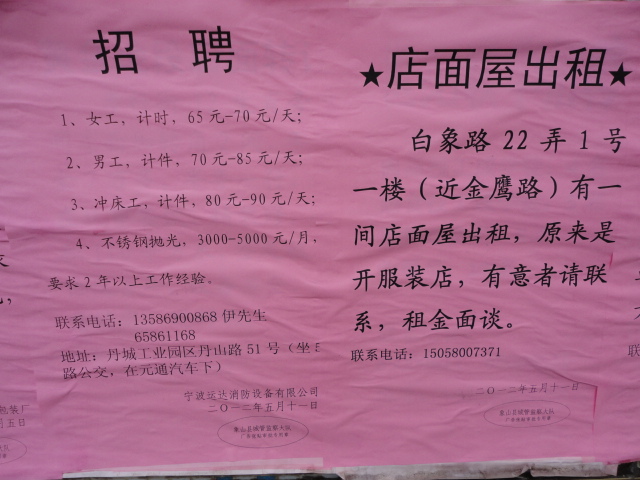 招 聘
1、女工，计时，65元-70元/天；
2、男工，计件，70元-85元/天；
3、冲床工，计件，80元-90元/天；
4、不锈钢抛光，3000-5000元/月，
要求2年以上工作经验。
联系电话：13586900868伊先生
65861168
地址：丹城工业园区丹山路51号（坐
路公交，在元通汽车下）
宁波运达消防设备有限公司
二〇一二年五月十一日
★店面屋出租★
白象路22弄1号
一楼（近金鹰路）有一
间店面屋出租，原来是
开服装店，有意者请联
系，租金面谈。
联系电话：15058007371
二〇一二年五月十一日
包装厂
月五日